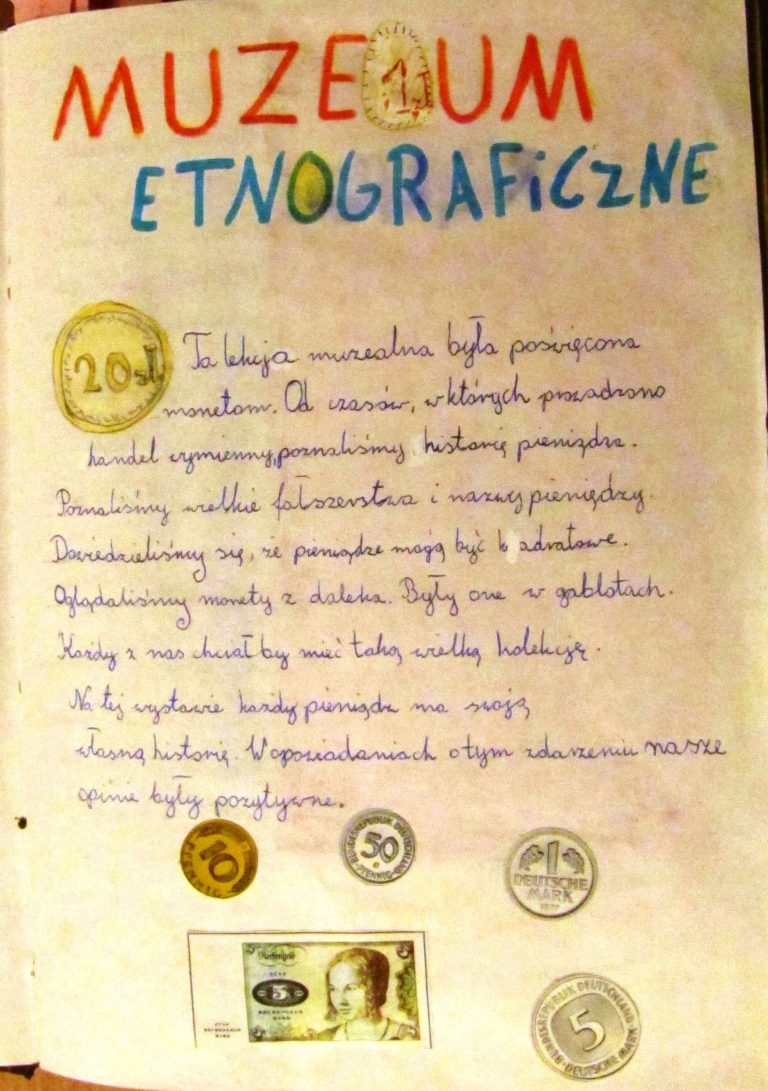 MUZEUM
1
ETNOGRAFiCZNE
20 zł
Ta lekcja muzealna była poświęcona
monetom. Od czasów, w których prowadzono
handel wymienny, poznaliśmy historię pieniądza.
Poznaliśmy wielkie fałszerstwa i nazwy pieniędzy.
Dowiedzieliśmy się, że pieniądze mogą być kwadratowe.
Oglądaliśmy monety z daleka. Były one w gablotach.
Każdy z nas chciałby mieć taką wielką kolekcję.
Na tej wystawie każdy pieniądz ma swoją
własną historię. W opowiadaniach o tym zdarzeniu nasze
opinie były pozytywne.
10
PFENNIG
BUNDESREPUBLIK DEUTSCHLAND
50
PFENNIG
1
DEUTSCHE
MARK
FÜNF
5
MARK
FÜNF
MARK
BUNDESREPUBLIK DEUTSCHLAND
5
DEUTSCHE MARK